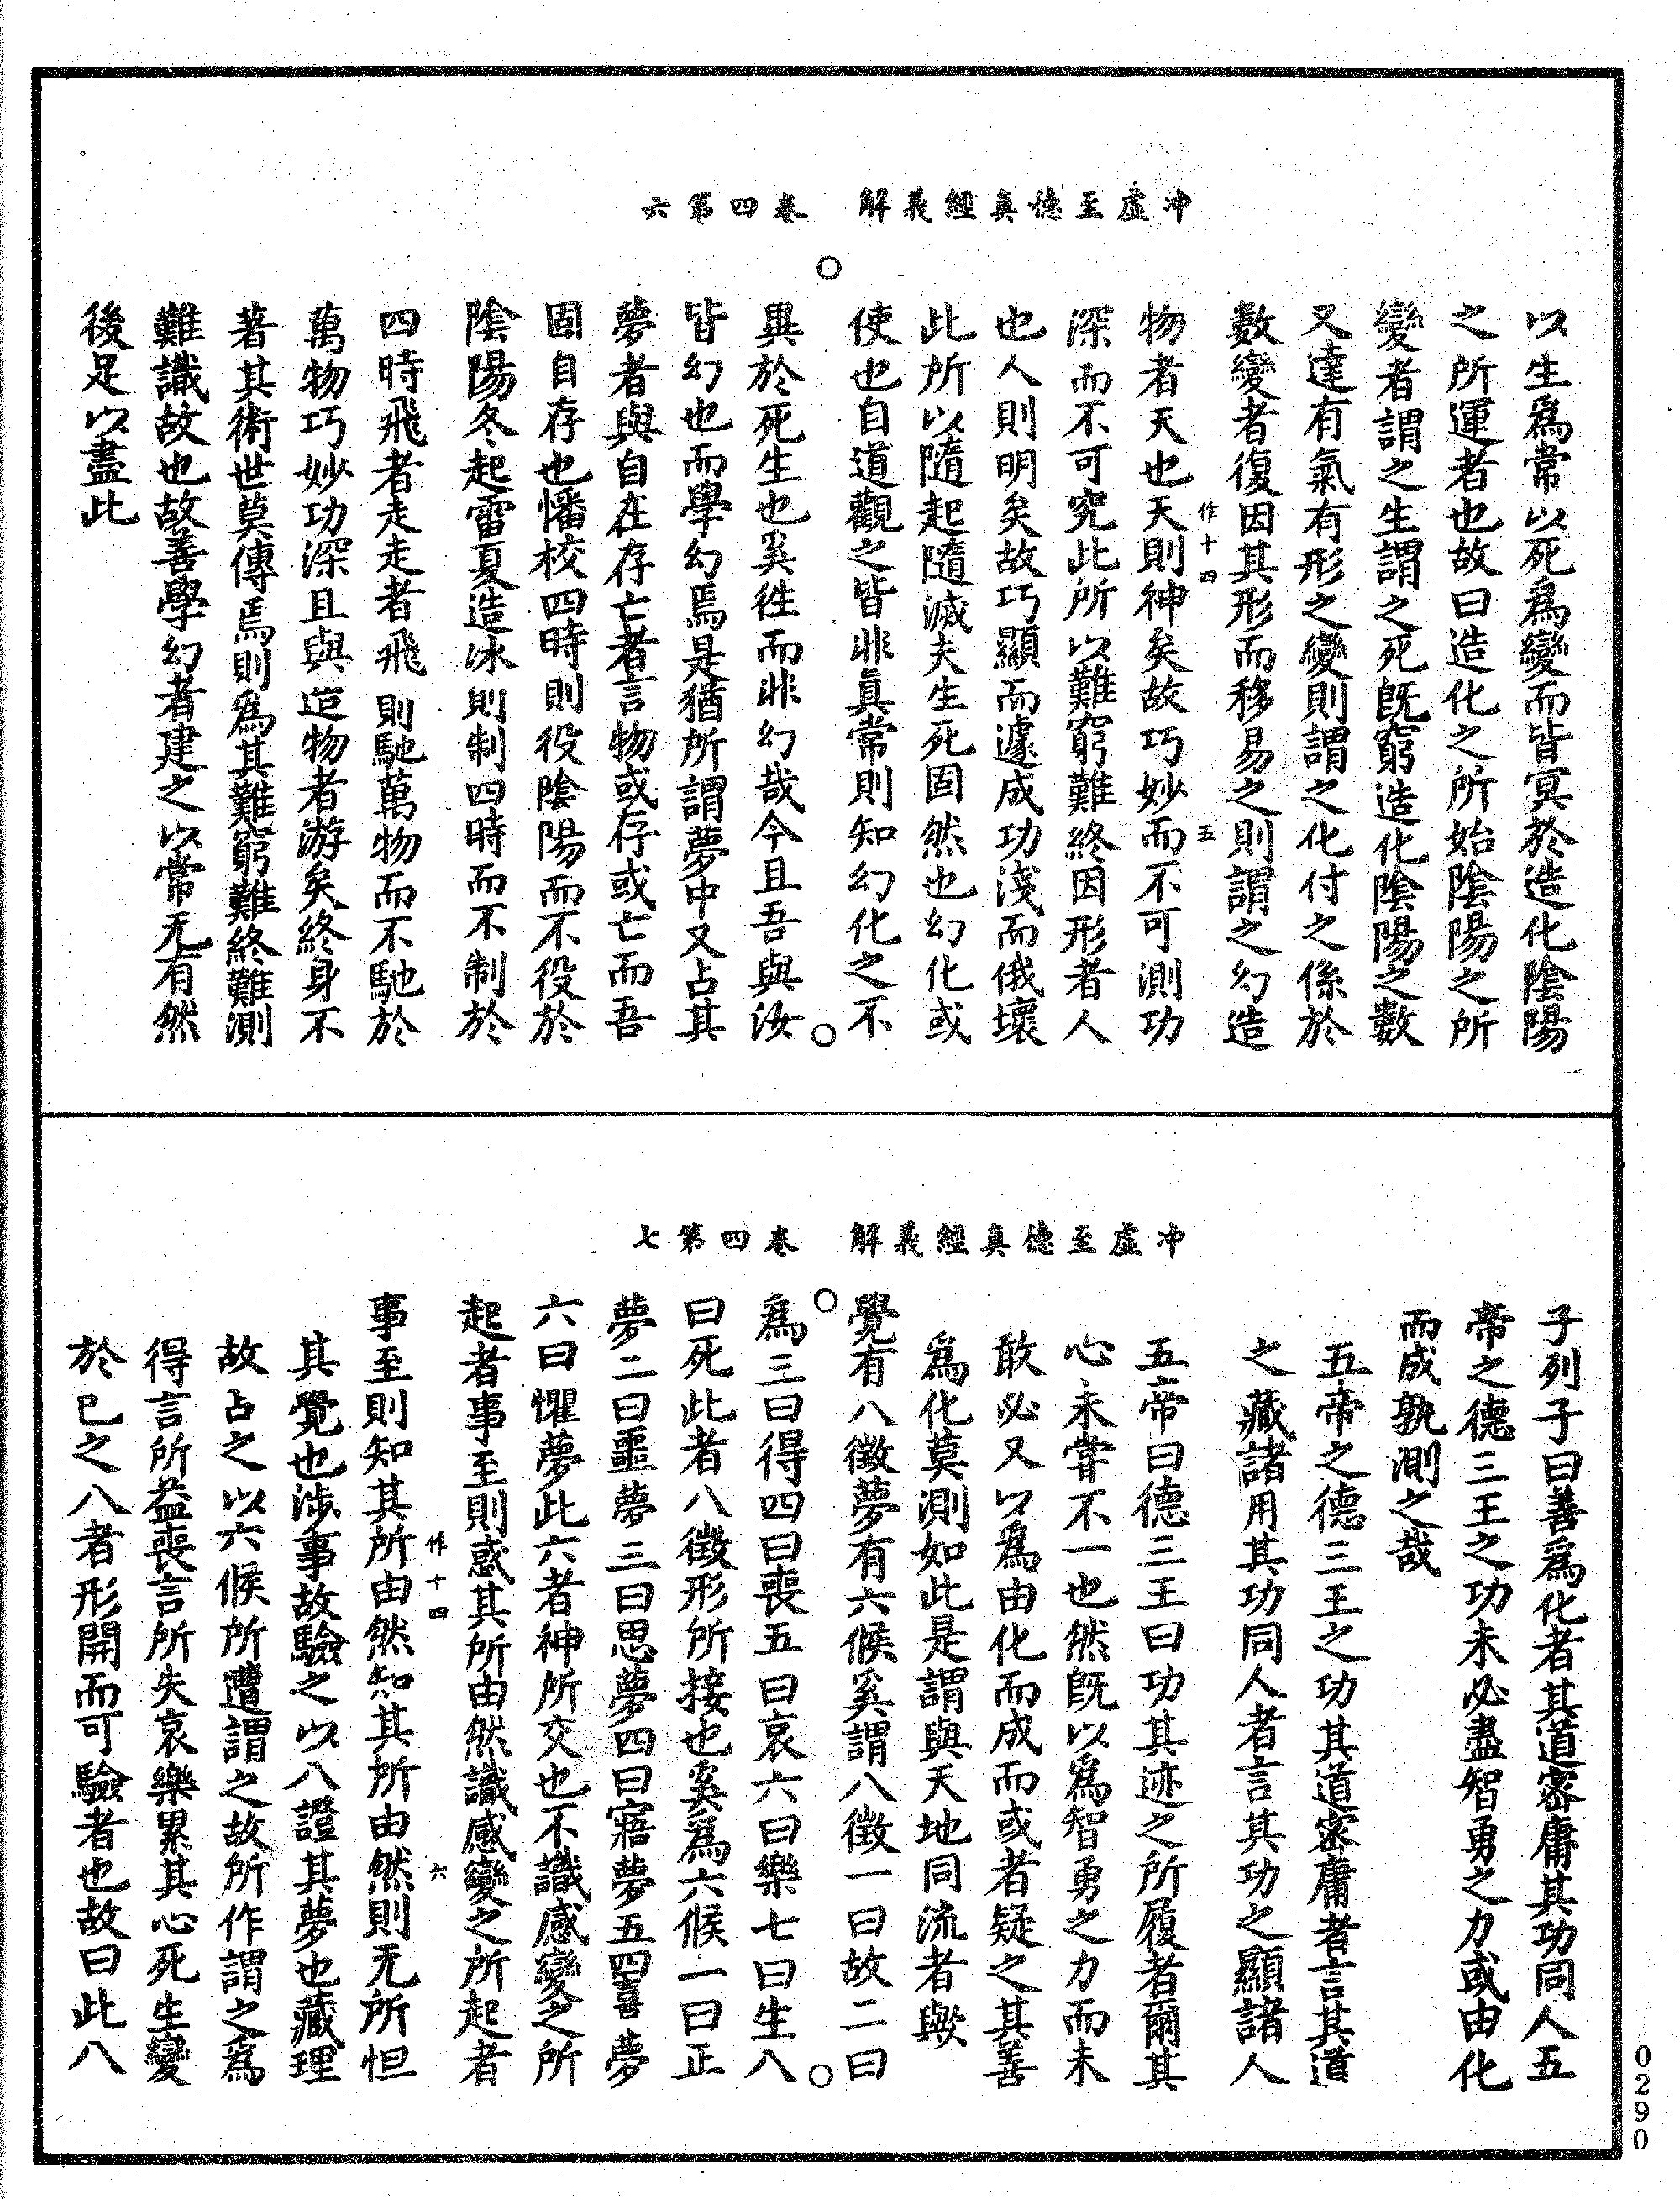 冲虛至德真經義解　卷四第六
以生爲常以死爲變而皆冥於造化陰陽
之所運者也故曰造化之所始陰陽之所
變者謂之生謂之死旣窮造化陰陽之數
又達有氣有形之變則謂之化付之係於
數變者復因其形而移易之則謂之幻造
作十四　五
物者天也天則神矣故巧妙而不可測功
深而不可究此所以難窮難終因形者人
也人則明矣故巧顯而遽成功淺而俄壞
此所以隨起隨滅夫生死固然也幻化或
使也自道觀之皆非真常則知幻化之不
異於死生也奚徃而非幻哉今且吾與汝
皆幻也而學幻焉是猶所謂夢中又占其
夢者與自在存亡者言物或存或亡而吾
固自存也憣校四時則役陰陽而不役於
陰陽冬起雷夏造冰則制四時而不制於
四時飛者走走者飛則馳萬物而不馳於
萬物巧妙功深且與造物者游矣終身不
著其術世莫傳焉則爲其難窮難終難測
難識故也故善學幻者建之以常无有然
後足以盡此
冲虛至德真經義解　卷四第七
子列子曰善爲化者其道密庸其功同人五
帝之德三王之功未必盡智勇之力或由化
而成孰測之哉
五帝之德三王之功其道密庸者言其道
之藏諸用其功同人者言其功之顯諸人
五帝曰德三王曰功其迹之所履者爾其
心未甞不一也然旣以爲智勇之力而未
敢必又以爲由化而成而或者疑之其善
爲化莫測如此是謂與天地同流者歟
覺有八徵夢有六候奚謂八徵一曰故二曰
爲三曰得四曰喪五曰哀六曰樂七曰生八
曰死此者八徵形所接也奚爲六候一曰正
夢二曰噩夢三曰思夢四曰寤夢五曰喜夢
六曰懼夢此六者神所交也不識感變之所
起者事至則惑其所由然識感變之所起者
作十四　六
事至則知其所由然知其所由然則无所怛
其覺也涉事故驗之以八證其夢也藏理
故占之以六候所遭謂之故所作謂之爲
得言所益喪言所失哀樂累其心死生變
於已之八者形開而可驗者也故曰此八
0290